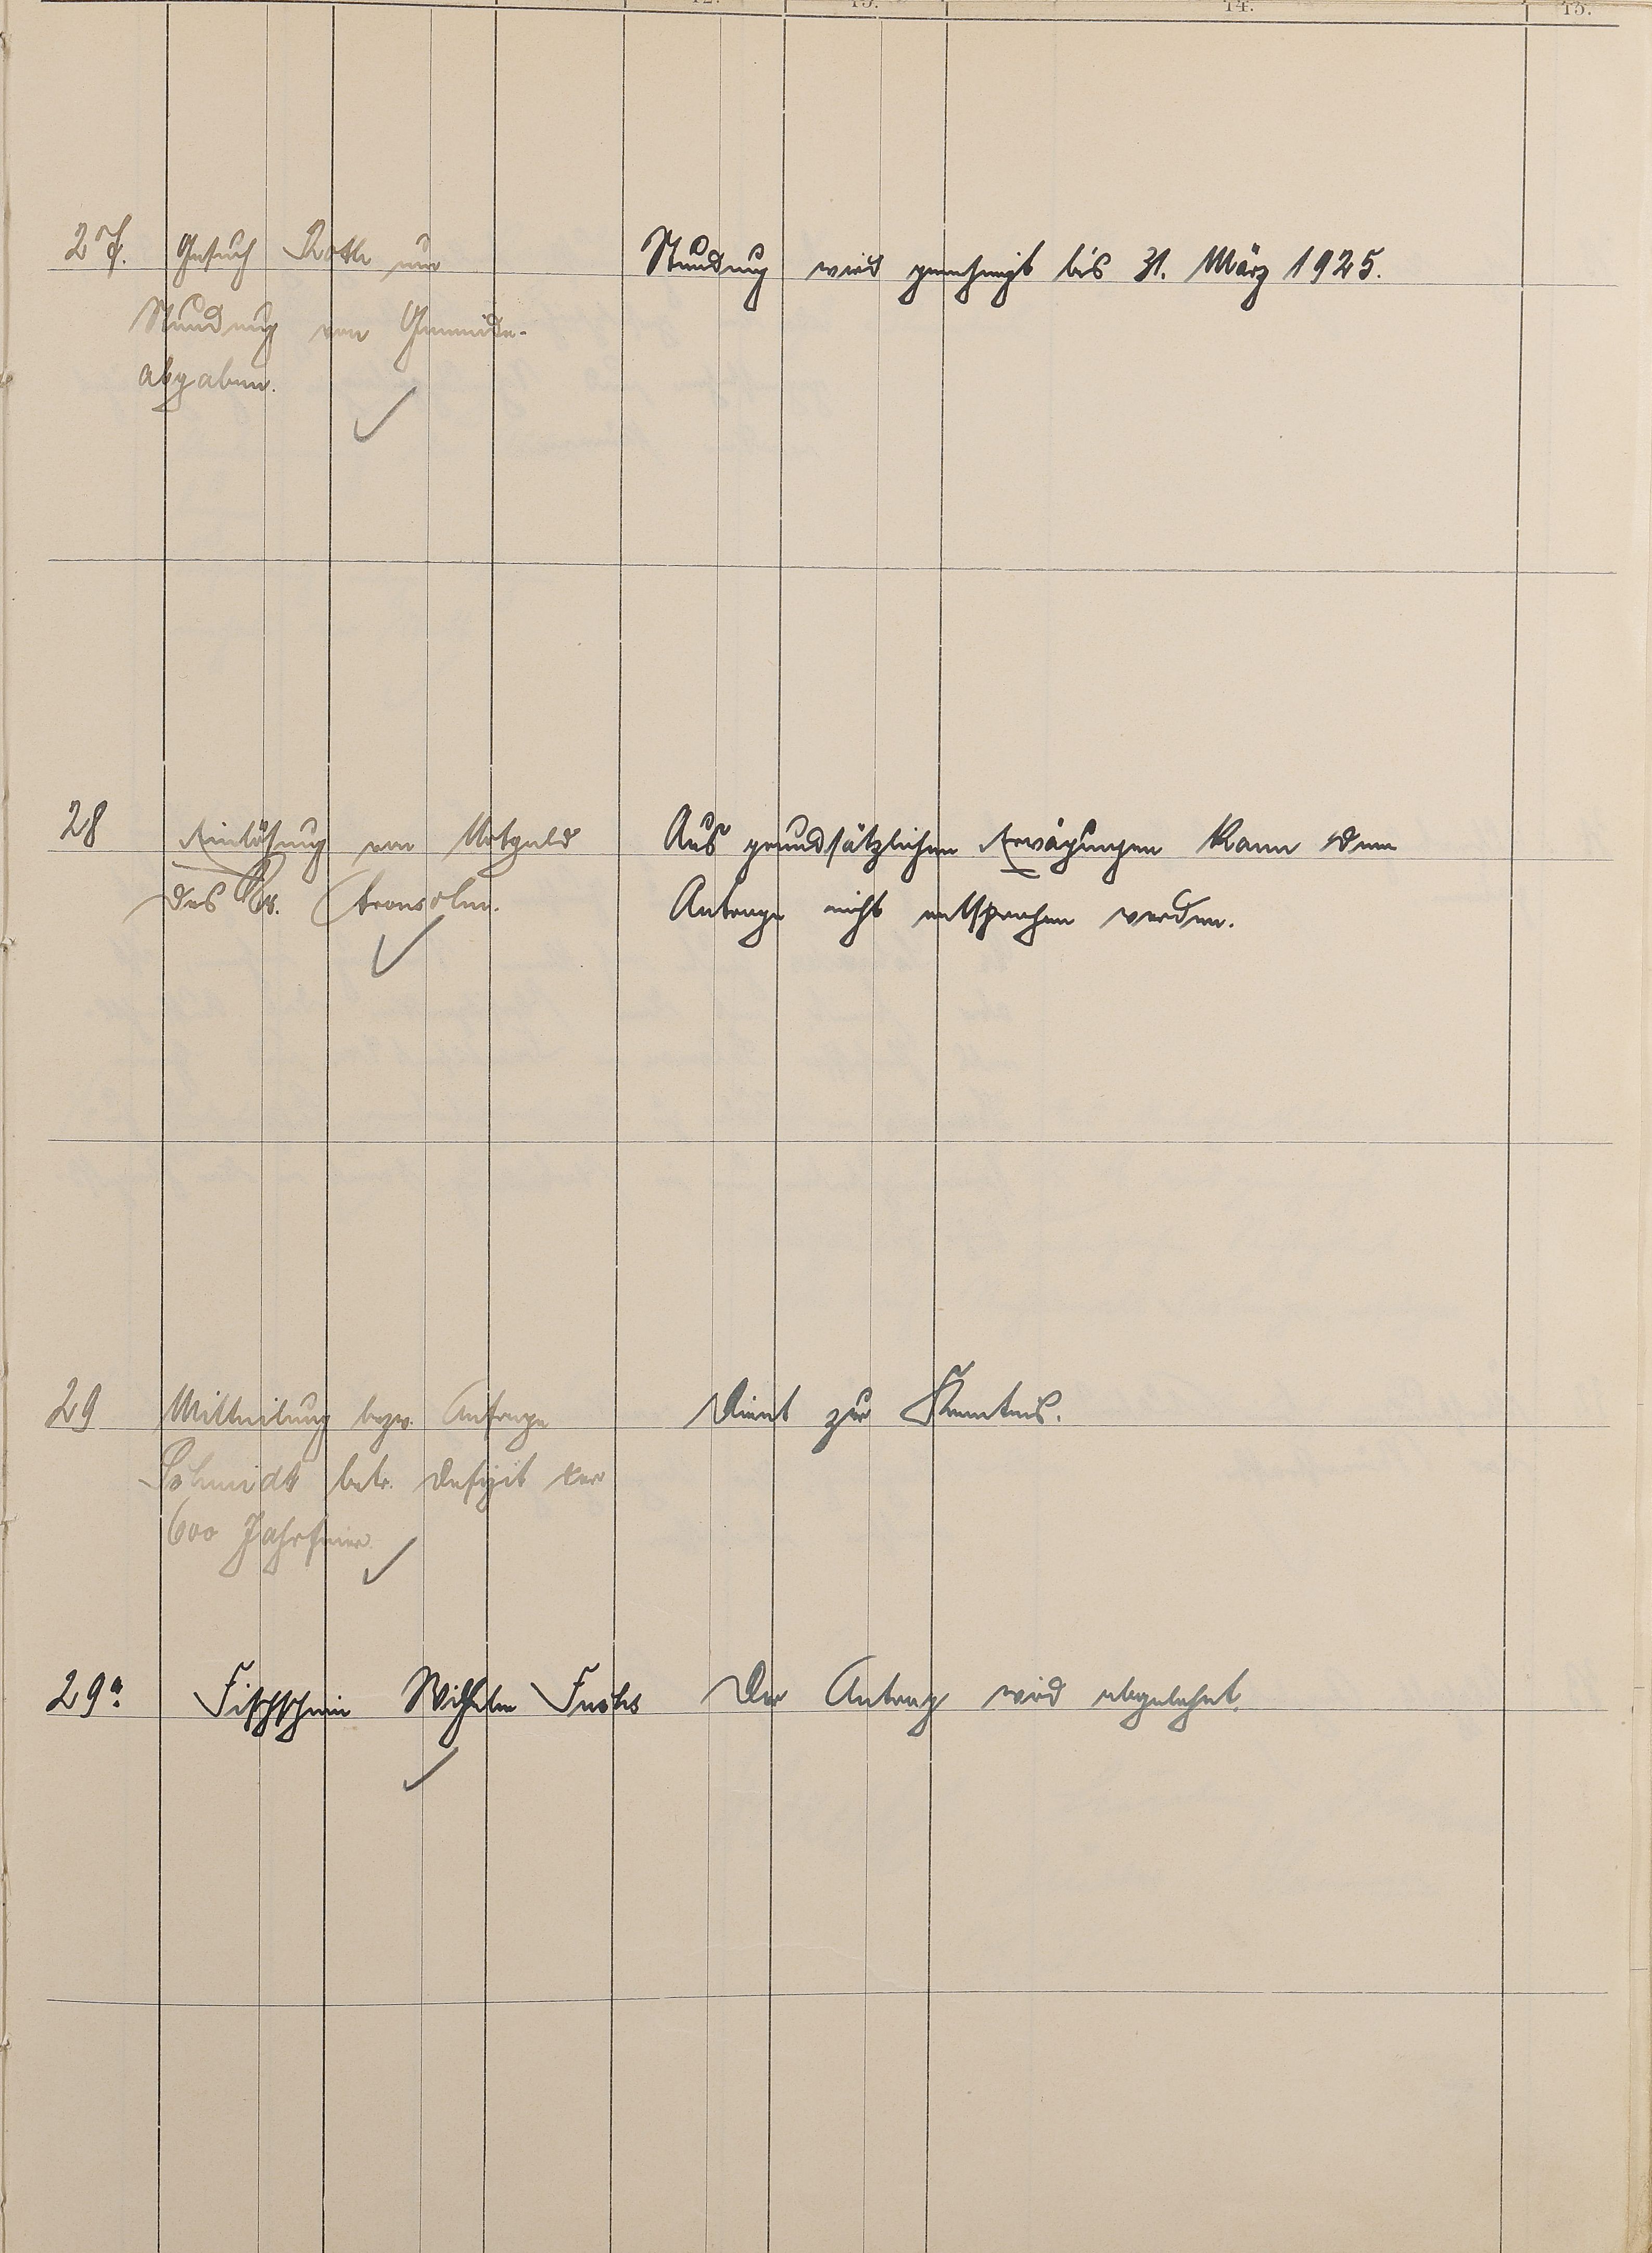 12. 13. 14. 15.
27. Gesuch Roth um
Stundung von Gemeinde-
abgaben.
Stundung wird genehmigt bis 31. März 1925.
28 Einlösung von Notgeld
des Dr. Aronsohn.
Aus grundsätzlichen Erwägungen kann dem
Antrage nicht entsprochen werden.
29 Mitteilung bezw. Anfrage
Schmidt betr. Defizit der
600 Jahrfeier.
Dient zur Kenntnis.
29a. Fischschein Wilhelm Fuchs
Der Antrag wird abgelehnt.